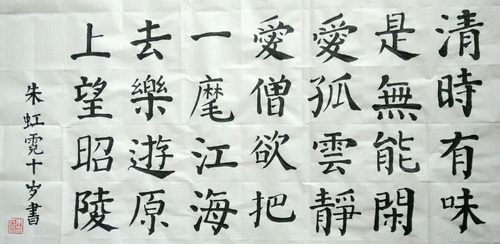 清時有味
是無能閑
愛孤雲靜
愛僧欲把
一麾江海
去樂遊原
上望昭陵
朱虹霓十岁書